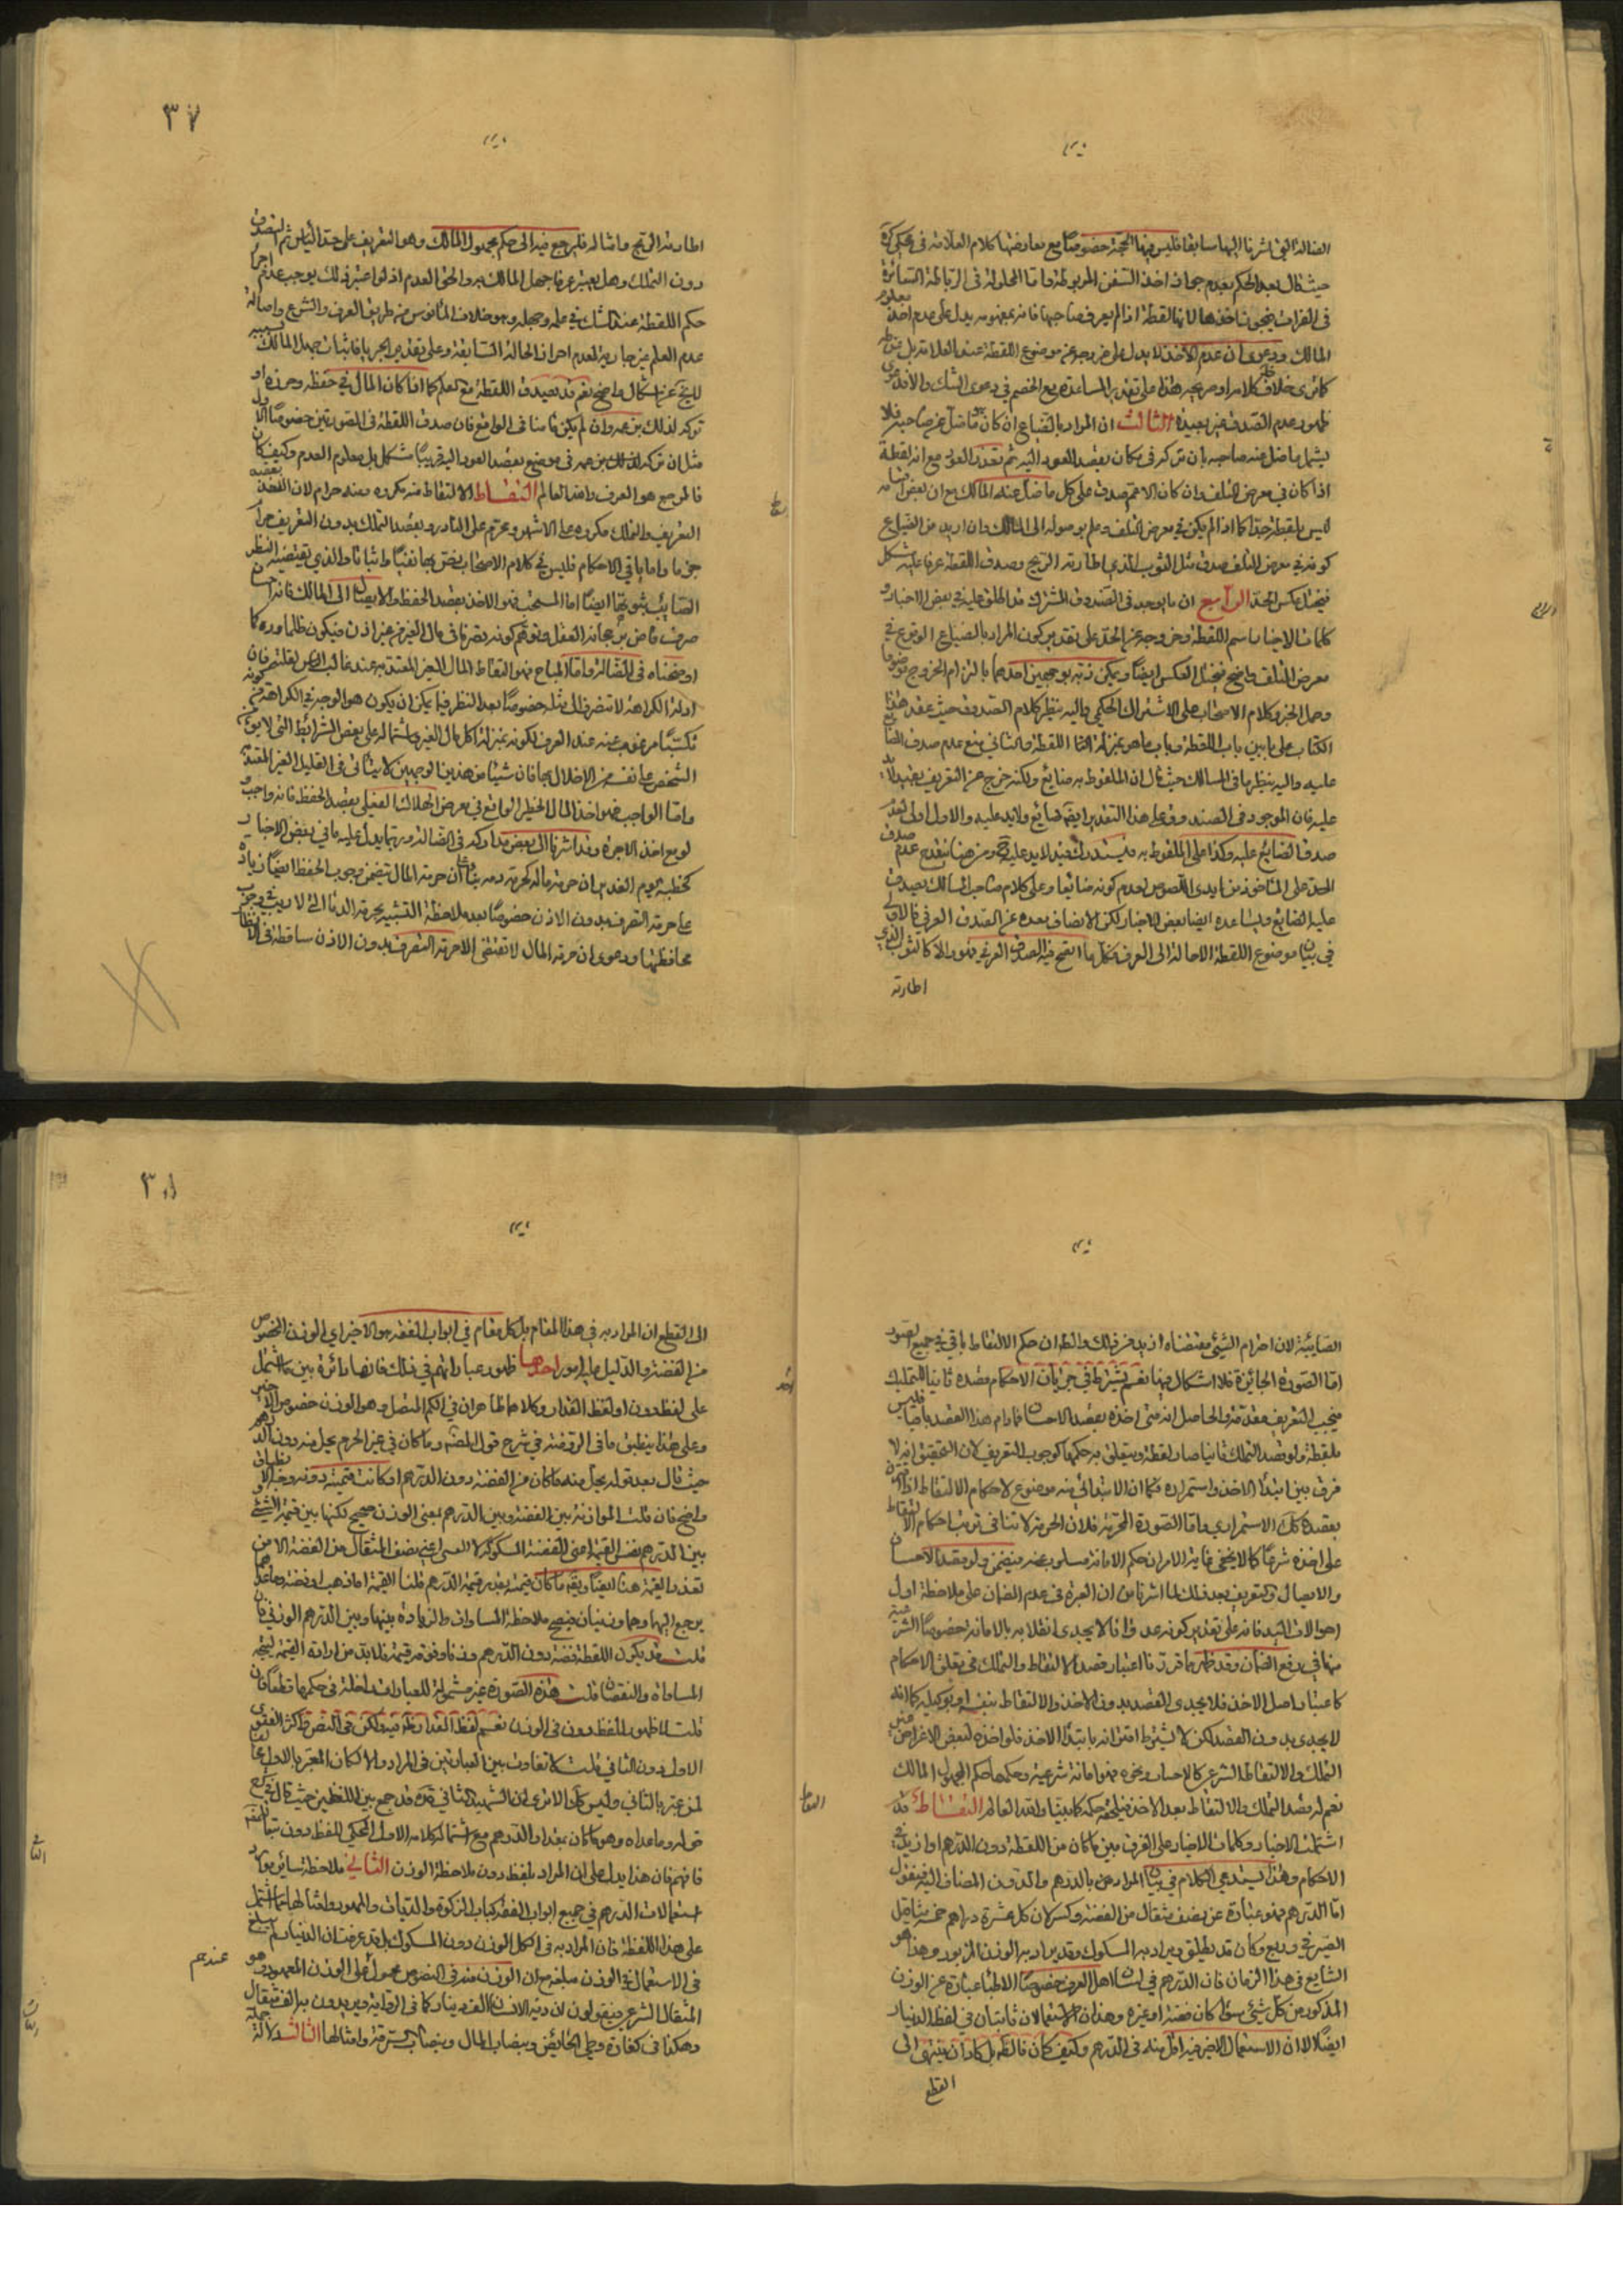 الضالة التي اشرنا اليها سابقا فليس فيها الحجة خصوصًا مع معارضتها كلام العلامة في محكي كرة
حيث قال بعد الحكم بعدم جواز اخذ السفن المربوطة واما المحلولة في الرباطة السائرة
في الفرات فيجوز اخذها لانها لقطة اذا لم يعرف صاحبها فانه بمفهومه يدل على عدم اخذ معلوم
المالك ودعوى ان عدم الاخذ لا يدل على خروجه عن موضوع اللقطة عند العلامة بل
كما ترى خلاف ظاهر كلامه او صريحه هذا على تقدير المساعدة مع الخصم في دعوى الشك والا فدعوى
ظهور عدم الصدق غير بعيدة الثالث ان المراد بالضياع ان كان ما ضل عن صاحبه فلا
يشمل ما ضل عنه صاحبه بان تركه في مكان بقصد العود اليه ثم تعذر العود مع انه لقطة
اذا كان في معرض التلف وان كان الاعم صدق على كل ما ضل عنه المالك مع ان بعض اقسامه
ليس بلقطة جدا كما اذا لم يكن في معرض التلف وعلم بوصوله الى المالك وان اريد من الضياع
كونه في معرض التلف صدق مثل الثوب الذي اطارته الريح وصدق اللقطة عرفا عليه مشكل
فيختل عكس الحد الرابع ان ما يوجد في الصندوق المشترك قد اطلق عليه في بعض الاخبار و
كلمات الاخيار اسم اللقطة وخروجه عن الحد على تقدير كون المراد بالضياع الوقوع في
معرض التلف واضح فيختل العكس ايضًا ويمكن ذبه بوجهين احدهما بالتزام الخروج موضوعا
وحمل الخبر وكلام الاصحاب على الاشتراك الحكمي واليه ينظر كلام الصدوق حيث عقد هذا
الكتاب على بابين باب اللقطة وباب ما هو بمنزلة اللقطة والثاني منع عدم صدق الضايع
عليه واليه ينظر ما في المسالك حيث قال ان الملفوظ به ضائع ولكنه خرج عن التعريف بقيد لا يد
عليه فان الموجود في الصندوق على هذا التقدير ايضًا ضائع ولا يد عليه والاول اولى لعدم
صدق الضايع عليه وكذا على الملفوظ به فيستدرك قيد لا يد عليه ومن هنا ينقدح عدم صدق
الحد على المأخوذ من ايدي اللصوص لعدم كونه ضائعا وعلى كلام صاحب المسالك يصدق
عليه الضايع ويساعده ايضا بعض الاخبار لكن الانصاف بعده عن الصدق العرفي فالاولى
في بيان موضوع اللقطة الاحالة الى العرف فكل ما اتضح فيه الصدق العرفي فهو والا كالثوب الذي
اطارته
٣٧
اطارته الريح وامثاله فليرجع فيه الى حكم مجهول المالك وهو التعريف على حد اليأس ثم التصدق
دون التملك وهل يعتبر عرفا جهل المالك به والحق العدم اذ لو اعتبر ذلك يوجب عدم اجراء
حكم اللقطة عند الشك في علمه وجهله وهو خلاف المأنوس من طريقة العرف والشرع واصالة
عدم العلم غير جارية لعدم احراز الحالة السابقة وعلى تقدير الجريان فاثبات جهل المالك بسببه
لا يخ عن اشكال واضح نعم قد يصدق اللقطة مع العلم كما اذا كان المال في حفظه وحرزه او
تركه لذلك من عمد وان لم يكن مأمنا في الواقع فان صدق اللقطة في الصورتين خصوصًا الاول
مثل ان تركه لذلك من عمد في موضع بقصد العود اليه قريبًا مشكل بل معلوم العدم وكيف كان
فالمرجع هو العرف والله العالم التقاط الالتقاط منه مكروه ومنه حرام لان القصد بعقبه
التعريف والتملك مكروه على الاشهر ومحرم على النادر وبقصد التملك بدون التعريف حرام
جزما واما باقي الاحكام فليس في كلام الاصحاب نص بها نفيًا واثباتا والذي يقتضيه النظر
الصائب ثبوتها ايضًا اما المستحب فهو الاخذ بقصد الحفظ والايصال الى المالك فانه احسان
صرف خاص يرجحانه العقل وتوهم كونه تصرفا في مال الغير من غير اذن فيكون ظلما مردود كما
اوضحناه في الضالة واما المباح فهو التقاط المال الغير المعتد به عند غالب الناس لقلته فان
ادلة الكراهة لا تنصرف الى مثله خصوصًا بعد النظر فيما يمكن ان يكون هو الوجه في الكراهة من كونه
تكسبًا مرغوب عنه عند العرف لكونه بمنزلة اكل مال الغير واشتماله على بعض الشرائط التي لا يوثق
الشخص على نفسه من الاخلال بها فان شيئا من هذين الوجهين لا يتاتى في القليل الغير المعتد به
واما الواجب فهو اخذ المال الخطير الواقع في معرض الهلاك الفعلي بقصد الحفظ فانه واجب و
لو مع اخذ الاجرة وقد اشرنا الى بعض مداركه في الضالة وربما يدل عليه ما في بعض الاخبار
كخطبة يوم الغدير ان حرمة ماله كحرمة دمه بناءً على ان حرمة المال تتضمن وجوب الحفظ ايضًا زيادة
على حرمة التصرف بدون الاذن خصوصًا بعد ملاحظة التشبيه بحرمة الدماء التي لا ريب في وجوب
محافظتها ودعوى ان حرمة المال لا تقتضي الا حرمة التصرف بدون الاذن ساقطة في الانظار
الصائبة لان احترام الشيء مقتضاه ازيد من ذلك والظ ان حكم الالتقاط باقي في جميع الصور
اما الصورة الجائزة فلا اشكال فيها نعم يشترط في جريان الاحكام قصده ثانيا للتمليك
فيجب التعريف مقدمة والحاصل انه متى اخذه بقصد الاحسان فما دام هذا القصد باقيا فليس
بلقطة ولو قصد التملك ثانيا صار لقطة ويتعلق به حكمها كوجوب التعريف لان التحقيق انه لا
فرق بين ابتداء الاخذ واستمراره فكما ان الابتدائي منه موضوع لاحكام الالتقاط اذا اقترن
بقصده كك الاستمراري واما الصورة المحرمة فلان الحرمة لا تنافي ترتب احكام الالتقاط
على اخذه شرعًا كما لا يخفى غاية الامر ان حكم الامانة مسلوب عنه فيضمن ولو بقصد الاحسان
والايصال والتعريف بعد ذلك لما اشرنا من ان العبرة في عدم الضمان على ملاحظة اول
احوالات اليد فانه على تقدير كونه عدوانا لا يجدي انقلابه بالامانة خصوصًا الشرعية
منها في رفع الضمان وقد ظهر مما قررنا اعتبار قصد الالتقاط والتملك في تعلق الاحكام
كاعتبار اصل الاخذ فلا يجدي القصد بدون الاخذ والالتقاط بنفسه او بوكيله كما انه
لا يجدي بدون القصد لكن لا يشترط اقترانه بابتداء الاخذ فلو اخذه لبعض الاغراض غير
التملك والالتقاط الشرعي كالاحسان ونحوه فهو امانة شرعية وحكمها حكم المجهول المالك
نعم لو قصد التملك والالتقاط بعد الاخذ فيلحقه حكمه كما بينا والله العالم التقاط قد
اشتملت الاخبار وكلمات الاخيار على الفرق بين ما كان من اللقطة دون الدرهم او ازيد في
الاحكام وهذا يستدعي الكلام في بيان المراد من بالدرهم والدون المضاف اليه فنقول
اما الدرهم فهو عبارة عن نصف مثقال من الفضة وكسر لان كل عشرة دراهم خمسة مثاقيل
الصيرفي وربع وكان قد يطلق ويراد به المسكوك وقد يراد به الوزن المزبور وهذا هو
الشايع في هذا الزمان فان الدرهم في لسان اهل العرف خصوصًا الاطباء عبارة عن الوزن
المذكور من كل شيء سواء كان فضة او غيره وهذان الاستعمالان ثابتان في لفظ الدينار
ايضًا الا ان الاستعمال الاخير فيه اقل منه في الدرهم وكيف كان فالظ بل كاد ان ينتهى الى
القطع
٣٨
الى القطع ان المراد به في هذا المقام بل كل مقام في ابواب الفقه هو الاخير اي الوزن المخصوص
من الفضة والدليل عليه امور احدها ظهور عباراتهم في ذلك فانها دائرة بين ما اشتمل
على لفظ دون او لفظ القدر وكلاهما ظاهران في الكم المتصل وهو الوزن خصوص الاخير
وعلى هذا ينطبق ما في الروضة في شرح قول المصنف وما كان في غير الحرم يحل منه دون الدرهم
حيث قال بعد قوله يحل منه ما كان من الفضة دون الدرهم او كانت قيمته دونه وجه الانطباق
واضح فان قلت الموازنة بين الفضة وبين الدرهم بمعنى الوزن صحيح لكنها بين قيمة الشيء
بين الدرهم نفس القيمة اعني الفضة المسكوكة لا المعنى اعني نصف المثقال من الفضة الا من
تعذر القيمة هنا ايضًا ويقع ما كان قيمته بقدر قيمة الدرهم قلنا القيمة اما ذهب او فضة وما عداهما
يرجع اليهما وهما وزنيان فيصح ملاحظة المساواة والزيادة بينها وبين الدرهم الوزني فان
قلت قد يكون اللقطة فضة دون الدرهم وزنا وفوقه قيمة فلا بد من ارادة القيمة ليتجه
المساواة والنقصان قلت هذه الصورة غير مشمولة للعبارات داخلة في حكمها قطعًا فان
قلت لا ظهور للفظ دون في الوزن نعم لفظ القدر ظاهر فيه ولكن في النص واكثر الفتوى
الاول دون الثاني قلت لا تفاوت بين العبارتين في المراد والا لكان المعبر بالاول مخالفا
لمن عبر بالثاني وليس كك الا ترى ان الشهيد الثاني قده قد جمع بين اللفظين حيث قال في شرح
قوله وما عداه وهو ما كان بقدر الدرهم مع اشتمال كلامه الاول المحكي للفظ دون
فافهم فان هذا يدل على ان المراد بلفظ دون ملاحظة الوزن الثاني ملاحظة سائر موارد
استعمالات الدرهم في جميع ابواب الفقه كباب الزكوة والديات والمهور وامثالها مما اشتمل
على هذا اللفظة فان المراد به في الكل الوزن دون المسكوك بل قد عرفت ان الدينار لم يبلغ
في الاستعمال في الوزن مبلغه مع ان الوزن منه في النصوص محمول على الوزن المعهود وهو عندهم
المثقال الشرعي فيقولون ان دية الانسان الف دينار كما في الرواية ويريدون به الف مثقال
وهكذا في كفارة وطي الحائض ونصاب المال ونصاب السرقة وامثالها الثالث دلالة